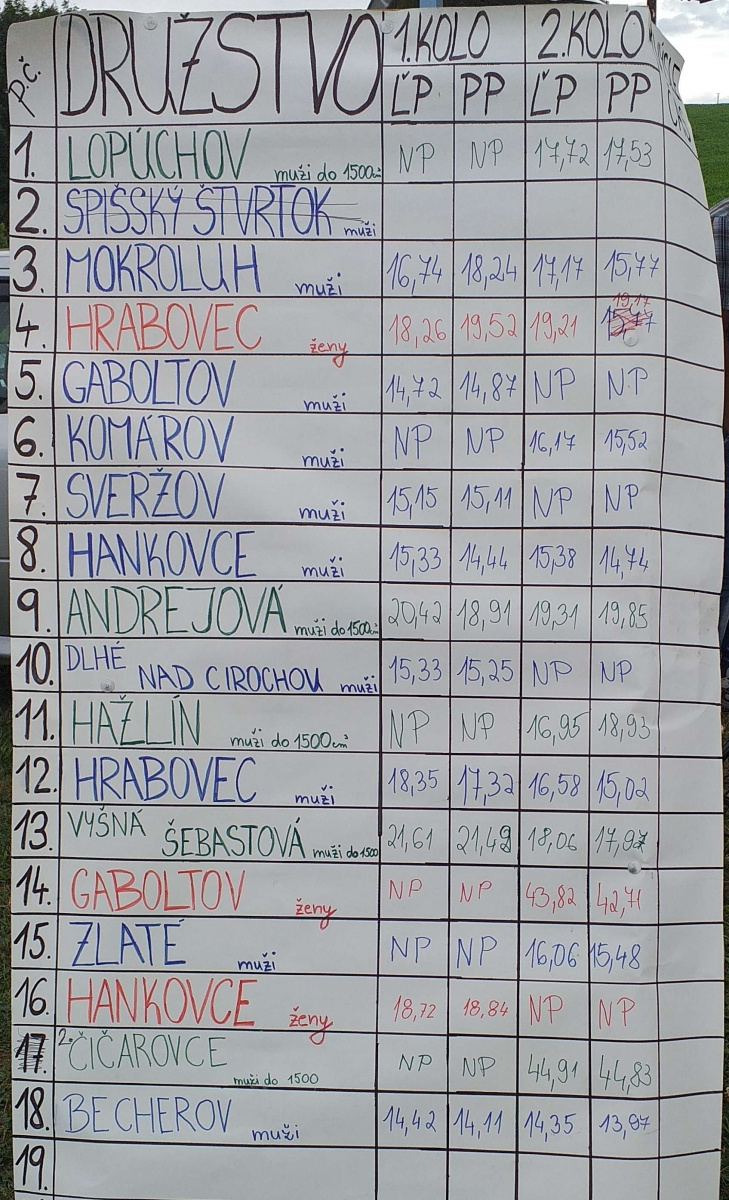 P.Č. DRUŽSTVO 1.KOLO 2.KOLO
ĽP PP ĽP PP
1. LOPÚCHOV muži do 1500cm³ NP NP 17,72 17,53
2. SPIŠSKÝ ŠTVRTOK muži
3. MOKROLUH muži 16,74 18,24 17,17 15,77
4. HRABOVEC ženy 18,26 19,52 19,21 19,17
5. GABOLTOV muži 14,72 14,87 NP NP
6. KOMÁROV muži NP NP 16,17 15,52
7. SVERŽOV muži 15,15 15,11 NP NP
8. HANKOVCE muži 15,33 14,44 15,38 14,74
9. ANDREJOVÁ muži do 1500cm³ 20,42 18,91 19,31 19,85
10. DLHÉ NAD CIROCHOU muži 15,33 15,25 NP NP
11. HAŽLÍN muži do 1500cm³ NP NP 16,95 18,93
12. HRABOVEC muži 18,35 17,32 16,58 15,02
13. VYŠNÁ ŠEBASTOVÁ muži do 1500 21,61 21,49 18,06 17,97
14. GABOLTOV ženy NP NP 43,82 42,71
15. ZLATÉ muži NP NP 16,06 15,48
16. HANKOVCE ženy 18,72 18,84 NP NP
17. 2. ČIČAROVCE muži do 1500 NP NP 44,91 44,83
18. BECHEROV muži 14,42 14,11 14,35 13,97
19.